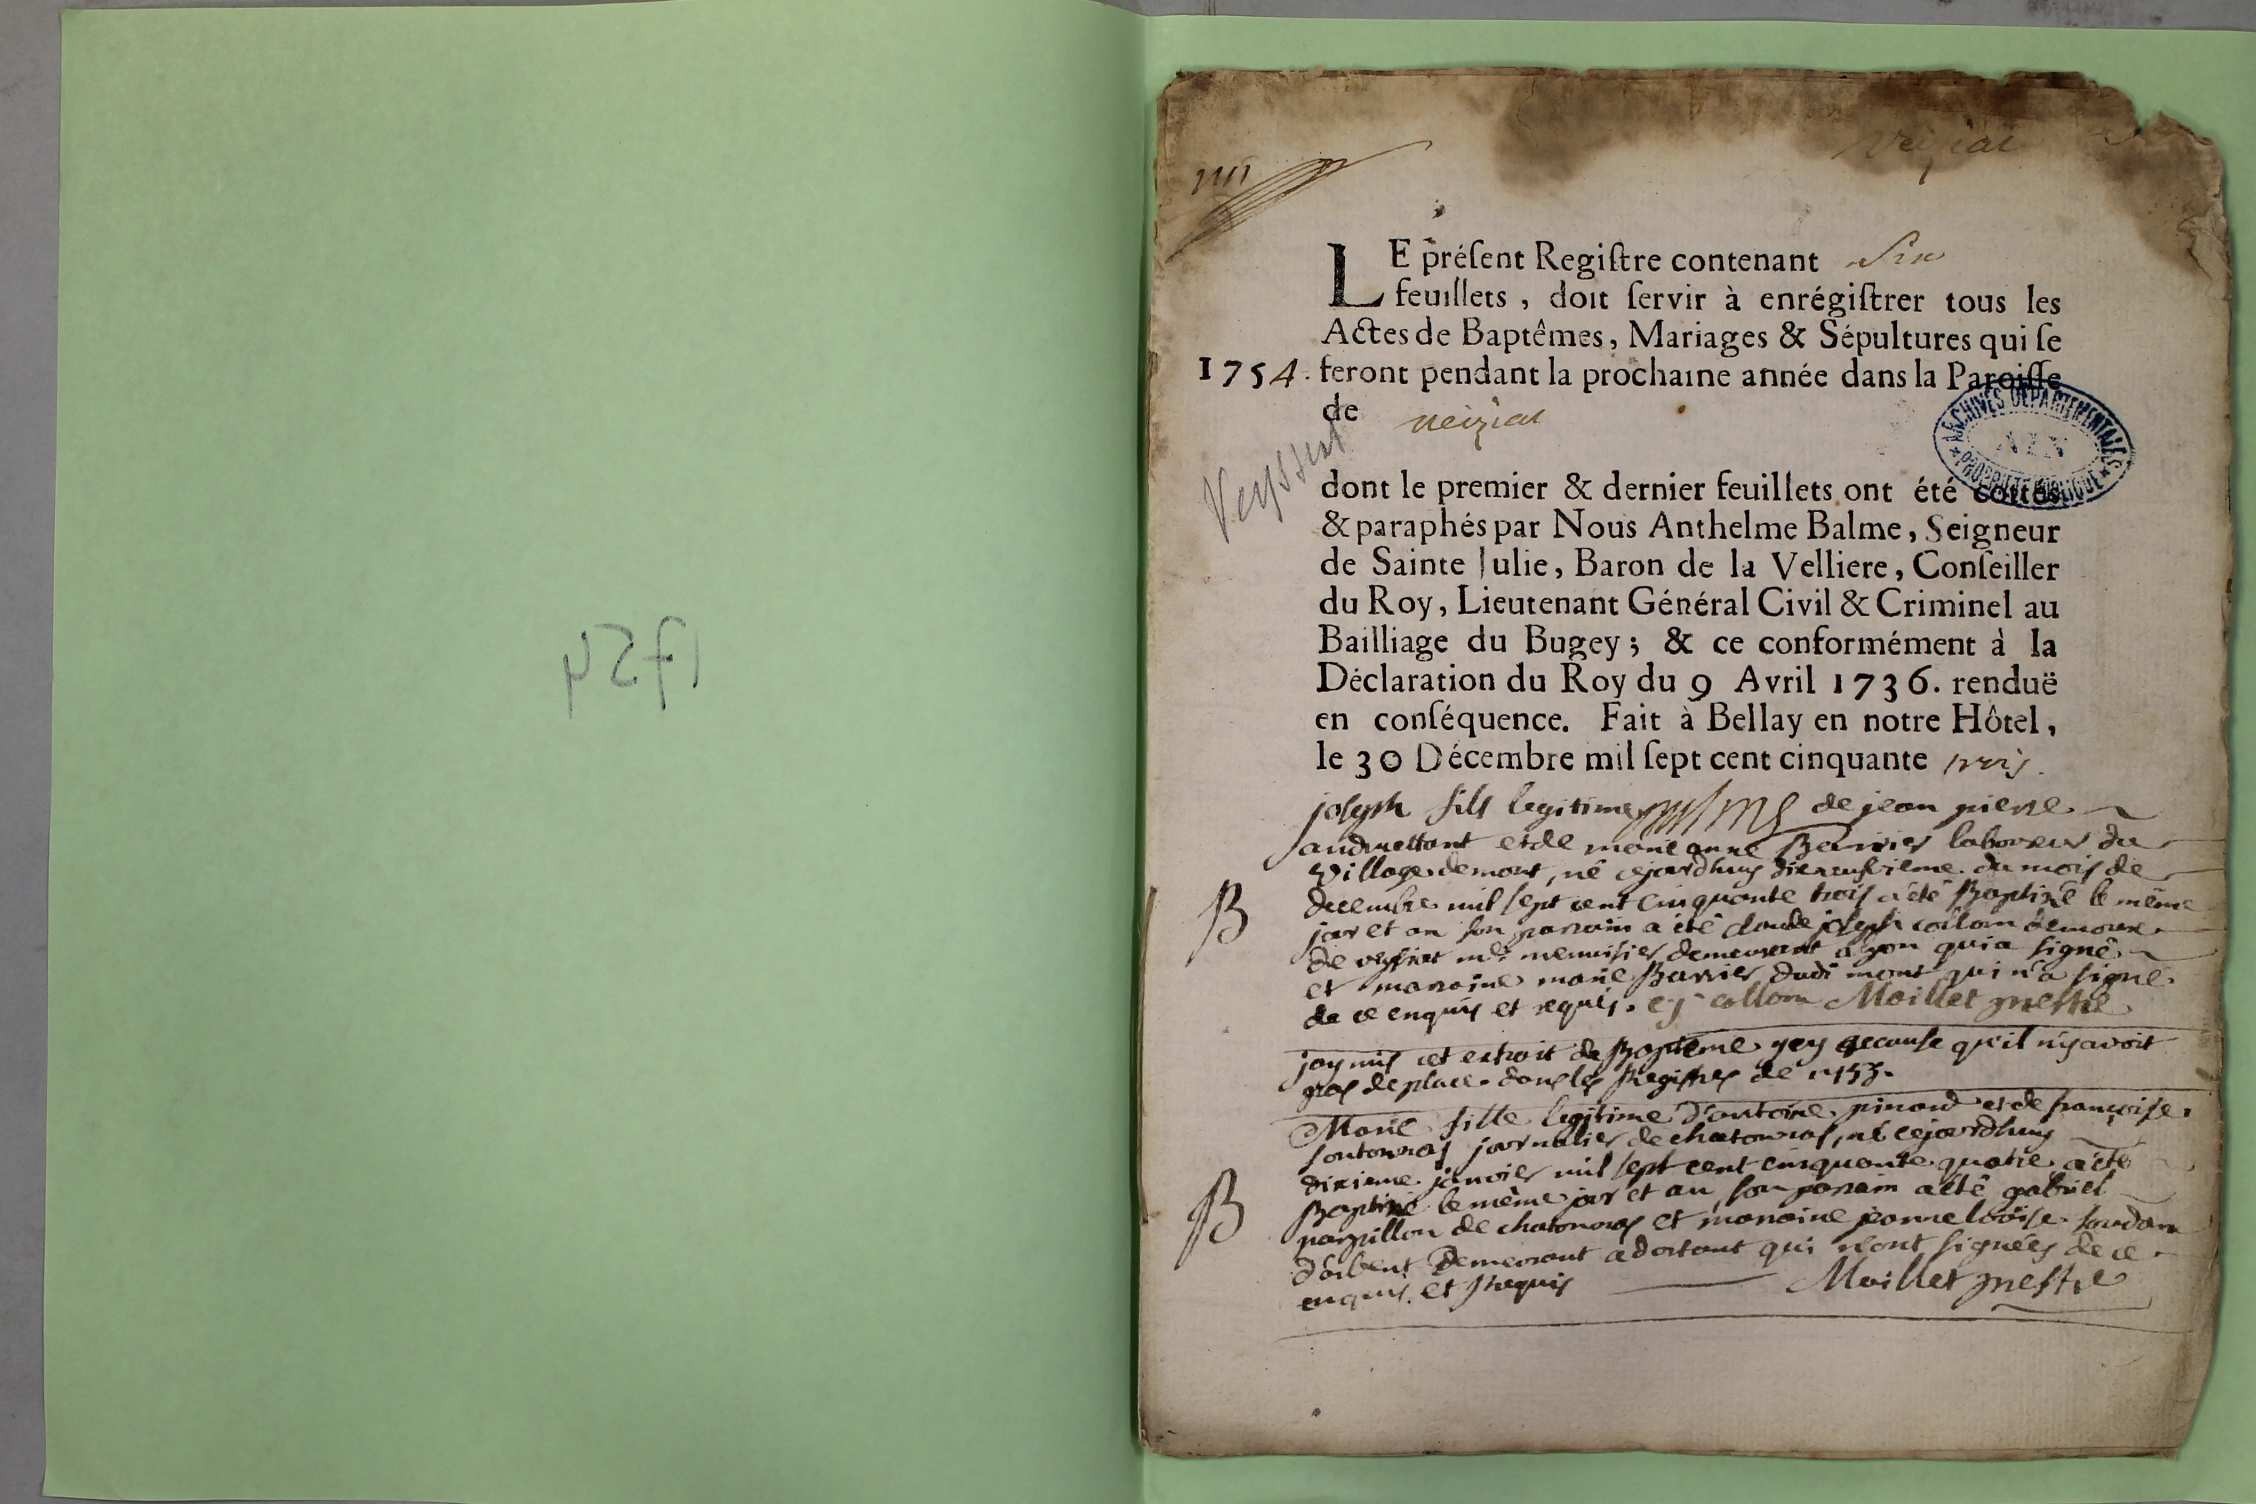 1754
veizial
LE préſent Regiſtre contenant Six
feuillets, doit ſervir à enrégiſtrer tous les
Actes de Baptêmes, Mariages & Sépultures qui ſe
1754. feront pendant la prochaine année dans la Paroiſſe
de veizial
Veyssiat
ARCHIVES DÉPARTEMENTALES
AIN
PROPRIÉTÉ PUBLIQUE
dont le premier & dernier feuillets ont été cottés
& paraphés par Nous Anthelme Balme, Seigneur
de Sainte Julie, Baron de la Velliere, Conſeiller
du Roy, Lieutenant Général Civil & Criminel au
Bailliage du Bugey; & ce conformément à la
Déclaration du Roy du 9 Avril 1736. renduë
en conſéquence. Fait à Bellay en notre Hôtel,
le 30 Décembre mil ſept cent cinquante trois.
joseph fils legitime de jean pierre
et de marie anne Barrier laboureur du
Village demont, né cejourdhuy dixneufvieme du mois de
B
decembre mil sept cent cinquante trois a été Baptizé le même
jour et an son parrain a été claude joseph collom
de veyziat md menuisier demeurant a qui a signé
et marraine marie Barrier dudt mont qui n'a signé
de ce enquis et requis. cj collom Maillet prestre
jay mis cet extrait de Bapteme icy acause qu'il n'y avoit
pas de place dans les Registres de 1753.
Marie fille legitime d'antoine pinard et de françoise
journalier de chatonnas, né cejourdhuy
dixieme janvier mil sept cent cinquante quatre a été
B
Baptizé le même jour et an son parrain a été gabriel
parpillon de chatonnas et marraine jeanne loüise
d'arbent Demeurant a dortant qui n'ont signées de ce
enquis et Requis Maillet prestre